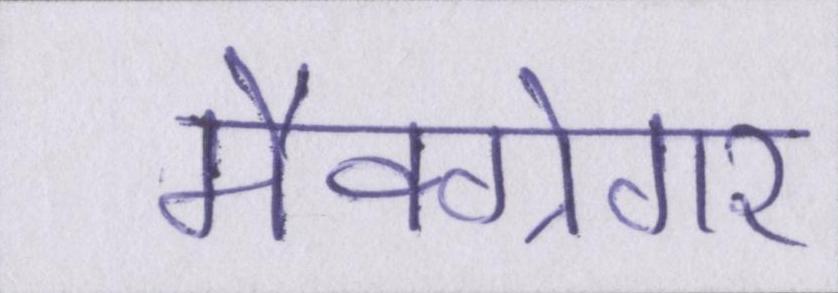 मैक्ग्रेगर